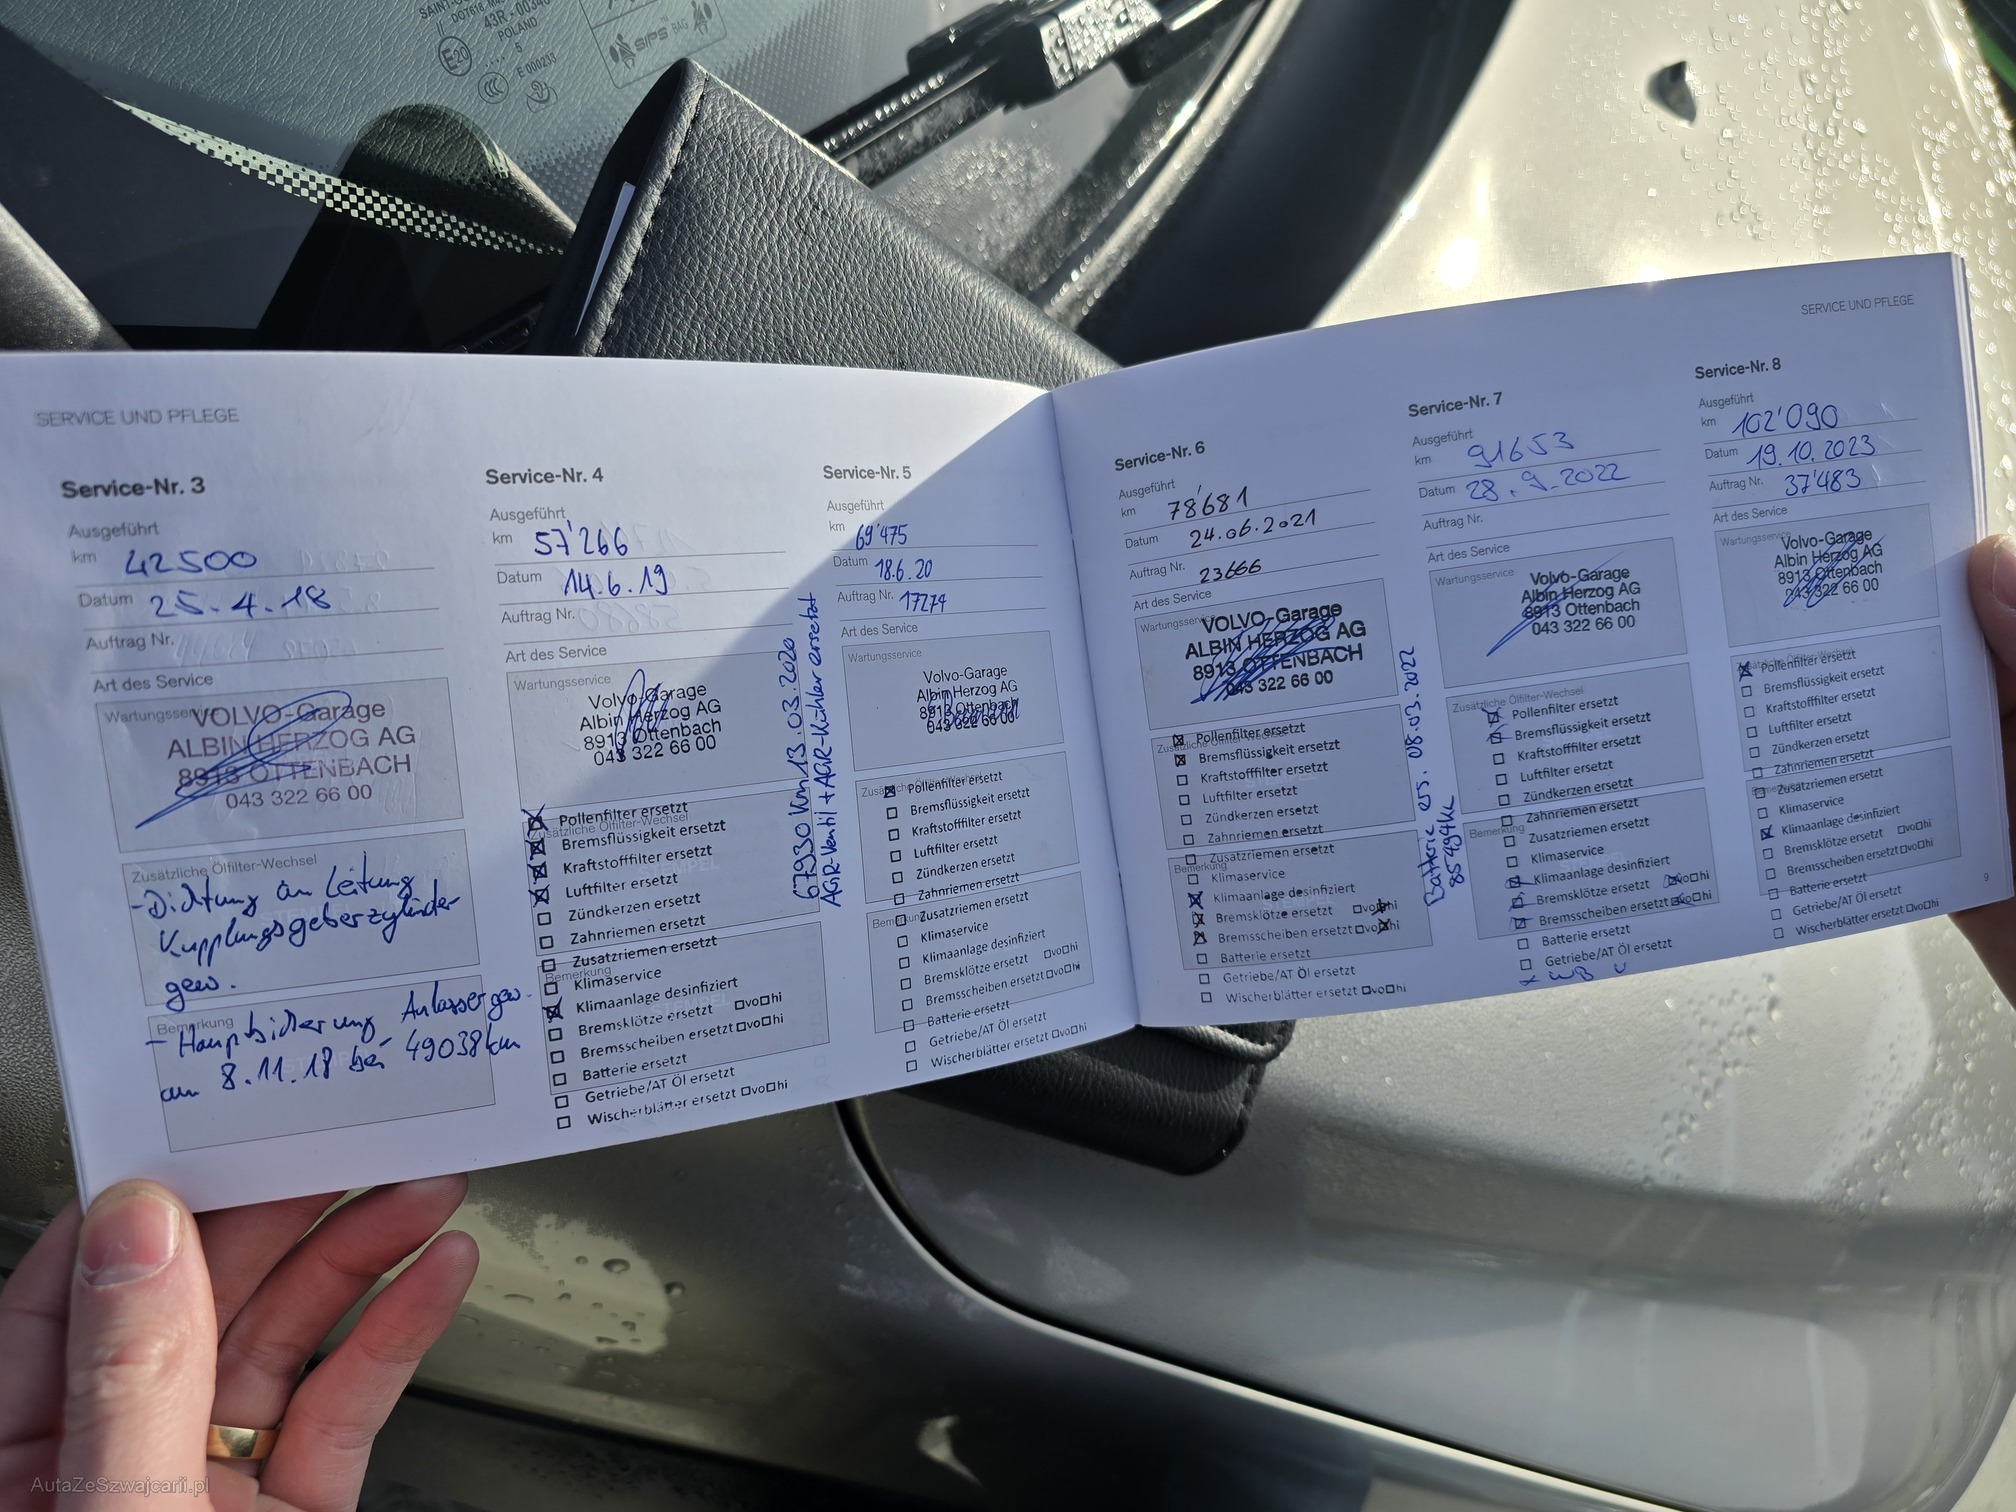 43R-0034
POLAND
5
E20
CCC
E 000233
SIPS BAG
SERVICE UND PFLEGE
Service-Nr. 3
Ausgeführt
km 42500
Datum 25.4.18
Auftrag Nr.
Art des Service
Wartungsservice
VOLVO-Garage
ALBIN HERZOG AG
8913 OTTENBACH
043 322 66 00
Zusätzliche Ölfilter-Wechsel
- Dichtung an Leitung
Kupplungsgeberzylinder
gew.
Bemerkung
- Hauptsicherung Anlasser gew.
am 8.11.18 bei 49038km
Service-Nr. 4
Ausgeführt
km 57'266
Datum 14.6.19
Auftrag Nr.
Art des Service
Wartungsservice
Volvo-Garage
Albin Herzog AG
8913 Ottenbach
043 322 66 00
Pollenfilter ersetzt
Zusätzliche Ölfilter-Wechsel
Bremsflüssigkeit ersetzt
Kraftstofffilter ersetzt
Luftfilter ersetzt
Zündkerzen ersetzt
Zahnriemen ersetzt
Zusatzriemen ersetzt
Bemerkung
Klimaservice
Klimaanlage desinfiziert
Bremsklötze ersetzt □vo□hi
Bremsscheiben ersetzt □vo□hi
Batterie ersetzt
Getriebe/AT Öl ersetzt
Wischerblätter ersetzt □vo□hi
67930 Km 13.03.2020
AGR-Ventil + AGR-Kühler ersetzt
Service-Nr. 5
Ausgeführt
km 69'475
Datum 18.6.20
Auftrag Nr. 17274
Art des Service
Wartungsservice
Volvo-Garage
Albin Herzog AG
8913 Ottenbach
043 322 66 00
Pollenfilter ersetzt
Bremsflüssigkeit ersetzt
Kraftstofffilter ersetzt
Luftfilter ersetzt
Zündkerzen ersetzt
Zahnriemen ersetzt
Zusatzriemen ersetzt
Klimaservice
Klimaanlage desinfiziert
Bremsklötze ersetzt □vo□hi
Bremsscheiben ersetzt □vo□hi
Batterie ersetzt
Getriebe/AT Öl ersetzt
Wischerblätter ersetzt □vo□hi
Service-Nr. 6
Ausgeführt
km 78'681
Datum 24.06.2021
Auftrag Nr. 23666
Art des Service
Wartungsservice
VOLVO-Garage
ALBIN HERZOG AG
8913 OTTENBACH
043 322 66 00
Pollenfilter ersetzt
Zusätzliche Ölfilter-Wechsel
Bremsflüssigkeit ersetzt
Kraftstofffilter ersetzt
Luftfilter ersetzt
Zündkerzen ersetzt
Zahnriemen ersetzt
Zusatzriemen ersetzt
Bemerkung
Klimaservice
Klimaanlage desinfiziert
Bremsklötze ersetzt □vo☒hi
Bremsscheiben ersetzt □vo☒hi
Batterie ersetzt
Getriebe/AT Öl ersetzt
Wischerblätter ersetzt □vo□hi
Batterie ers. 08.03.2022
85494km
SERVICE UND PFLEGE
Service-Nr. 7
Ausgeführt
km 91653
Datum 28.9.2022
Auftrag Nr.
Art des Service
Wartungsservice
Volvo-Garage
Albin Herzog AG
8913 Ottenbach
043 322 66 00
Zusätzliche Ölfilter-Wechsel
Pollenfilter ersetzt
Bremsflüssigkeit ersetzt
Kraftstofffilter ersetzt
Luftfilter ersetzt
Zündkerzen ersetzt
Zahnriemen ersetzt
Bemerkung
Zusatzriemen ersetzt
Klimaservice
Klimaanlage desinfiziert
Bremsklötze ersetzt ☒vo□hi
Bremsscheiben ersetzt ☒vo□hi
Batterie ersetzt
Getriebe/AT Öl ersetzt
Service-Nr. 8
Ausgeführt
km 102'090
Datum 19.10.2023
Auftrag Nr. 37'483
Art des Service
Wartungsservice
Volvo-Garage
Albin Herzog AG
8913 Ottenbach
043 322 66 00
Pollenfilter ersetzt
Bremsflüssigkeit ersetzt
Kraftstofffilter ersetzt
Luftfilter ersetzt
Zündkerzen ersetzt
Zahnriemen ersetzt
Zusatzriemen ersetzt
Klimaservice
Klimaanlage desinfiziert
Bremsklötze ersetzt □vo□hi
Bremsscheiben ersetzt □vo□hi
Batterie ersetzt
Getriebe/AT Öl ersetzt
Wischerblätter ersetzt □vo□hi
9
AutaZeSzwajcarii.pl